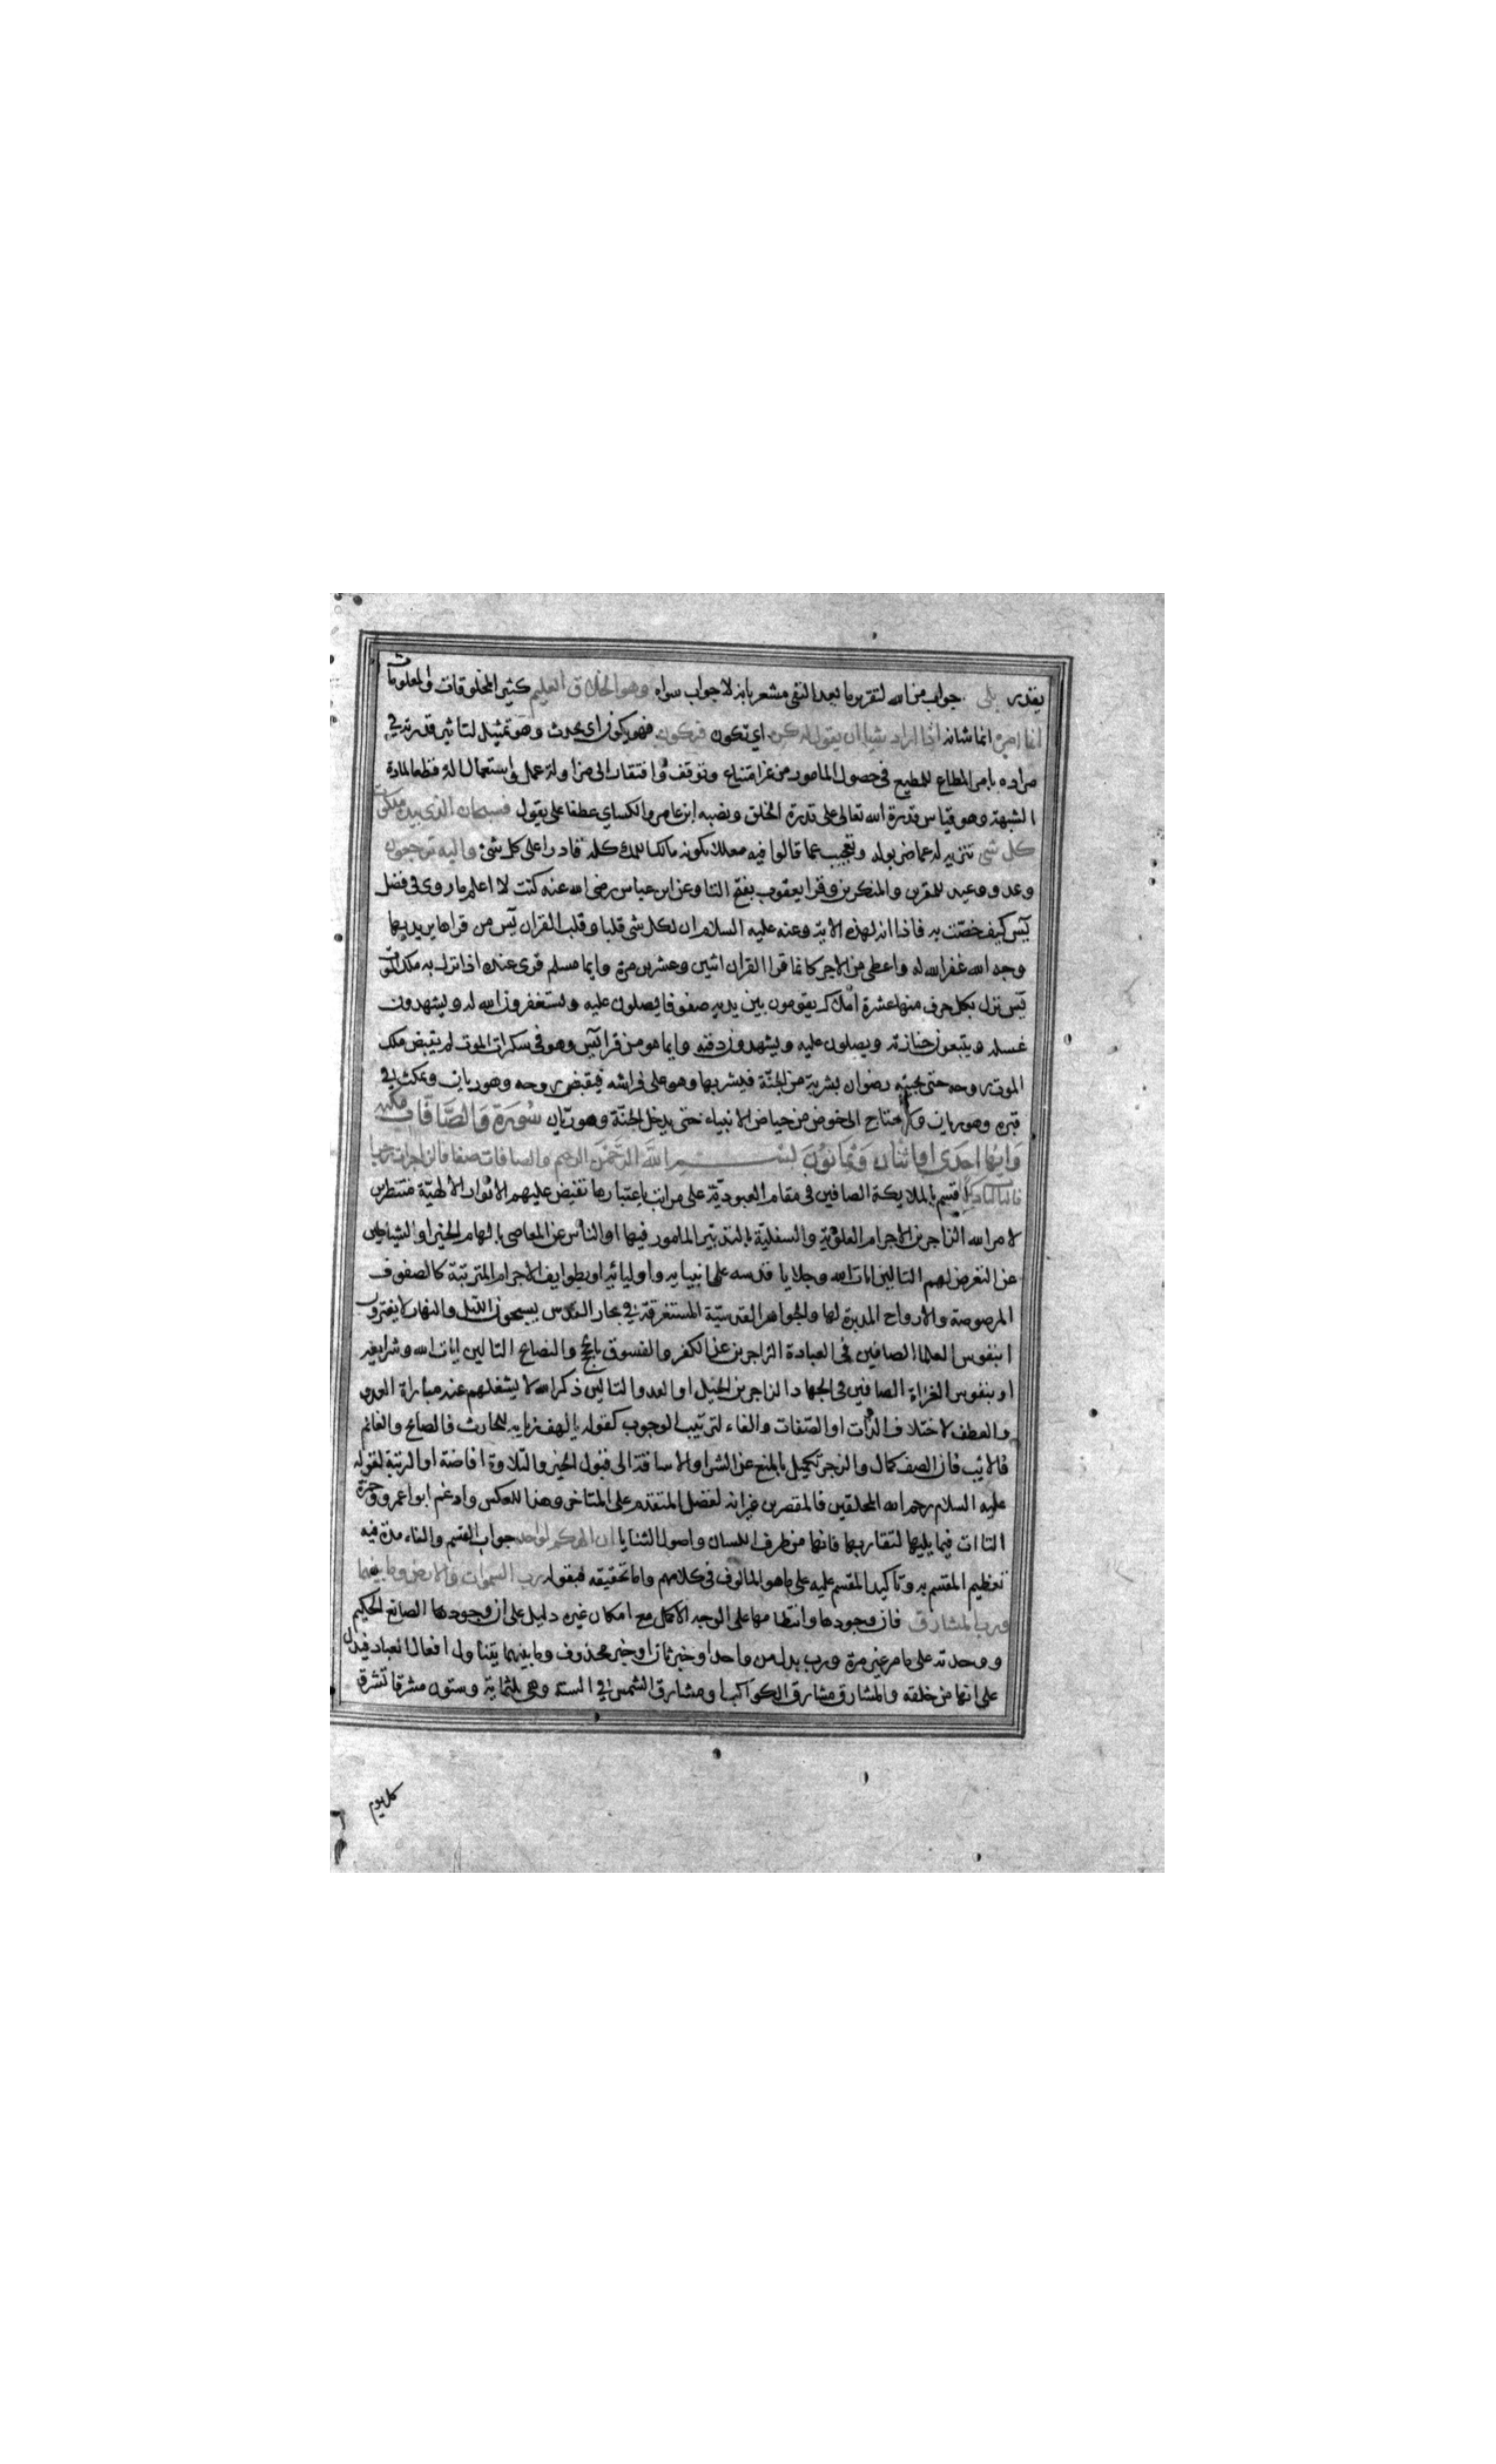 يقدر بلى جواب من الله لتقرير ما بعد النفى مشعر بانه لا جواب سواه وهو الخلاق العليم كثير المخلوقات والمعلومات
انما امره انما شانه اذا اراد شيا ان يقول له كن اى تكون فيكون فهو يكون اى يحدث وهو تمثيل لتاثير قدرته فى
مراده بامر المطاع للمطيع فى حصول المامور من غير امتناع وتوقف وافتقار الى مزاولة عمل واستعمال الة قطعا لمادة
الشبهة وهو قياس قدرة الله تعالى على قدرة الخلق ونصبه ابن عامر والكساى عطفا على يقول فسبحان الذى بيده ملكوت
كل شى تنزيه له عما ضربوا له وتعجيب عما قالوا فيه معللا بكونه مالكا للملك كله قادرا على كل شئ واليه ترجعون
وعد ووعيد للمقرين والمنكرين وقرا يعقوب بفتح التا وعن ابن عباس رضى الله عنه كنت لا اعلم ما روى فى فضل
يس كيف خصّت به فاذا انه لهذه الاية وعنه عليه السلام ان لكل شى قلبا وقلب القران يس من قراها يريد بها
وجه الله غفر الله له واعطى من الاجر كانما قرا القران اثنين وعشرين مرة وايما مسلم قرى عنده اذا نزل به ملك الموت
يس نزل بكل حرف منها عشرة املاك يقومون بين يديه صفوفا يصلون عليه ويستغفرون الله له ويشهدون
غسله ويتبعون جنازته ويصلون عليه ويشهدون دفنه وايما هو من قرا يس وهو فى سكرات الموت لم يقبض ملك
الموت روحه حتى يجيئه رضوان بشربة من الجنّة فيشربها وهو على فراشه فيقبض روحه وهو ريان ويمكث فى
قبره وهو ريان ولا يحتاج الى حوض من حياض الانبياء حتى يدخل الجنّة وهو ريّان سُورَة وَالصَّافَّات مكية
وَايُها احدَى او اثنان وَثمانوُنَ بسم اللهَ الرّحَمن الرحيم والصافات صفا فالزاجرات زجرا
فالتاليات ذكرا اقسم بالملايكة الصافين فى مقام العبوديّة على مراتب باعتبارها تفيض عليهم الانوار الالهيّة منتظرين
لامر الله الزاجرين الاجرام العلويّة والسفليّة بالتدبير المامور فيها او الناس عن المعاصى بالهام الخير او الشياطين
عن التعرض لهم التالين ايات الله وجلايا قدسه على انبيايه واوليائه او بطوايف الاجرام المترتبة كالصفوف
المرصوصة والارواح المدبرة لها والجواهر القدسيّة المستغرقة فى بحار القدس يسبحون الليل والنهار لا يفترون
ا بنفوس العلما الصافين فى العبادة الزاجرين عن الكفر والفسوق بالحجج والنصايح التالين ايات الله وشرايعه
او بنفوس الغزاة الصافين فى الجهاد الزاجرين الخيل او العدو والتالين ذكر الله لا يشغلهم عنه مباراة العدو
والعطف لاختلاف الذّات او الصّفات والفاء لترتيب الوجود كقوله يا لهف زيابه للحارث فالصابح والغانم
فالايب فان الصف كمال والزجر تكميل بالمنع عن الشر او الاساقة الى قبول الخير والتلاوة افاضته او الرتبة لقوله
عليه السلام رحم الله المحلقين فالمقصرين غير انه لفضل المتقدم على المتاخر وهذا للعكس وادغم ابوا عمرو وحمزة
التاات فيما يليها لتقاربها فانها من طرف اللسان واصول الثنايا ان الهكم لواحد جواب القسم والفاء مدة فيه
تعظيم المقسم به وتاكيد المقسم عليه على ما هو المالوف فى كلامهم واما تحقيقه فبقوله رب السموات والارض وما بينهما
ورب المشارق فان وجودها وانتظامها على الوجه الاكمل مع امكان غيره دليل على ان وجودها الصانع الحكيم
ووحدته على ما مر غير مرة ورب بدل من واحد او خبر ثان او خبر محذوف وما بينهما يتناول افعال العباد فيدل
على انها من خلقه والمشارق مشارق الكواكب او مشارق الشمس فى السنة وهى ثلثماية وستون مشرقا تشرق
كل يوم